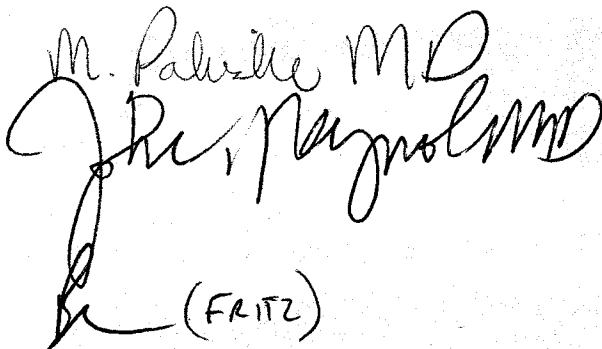 M. Paluska MD
John Reynolds MD
(FRITZ)